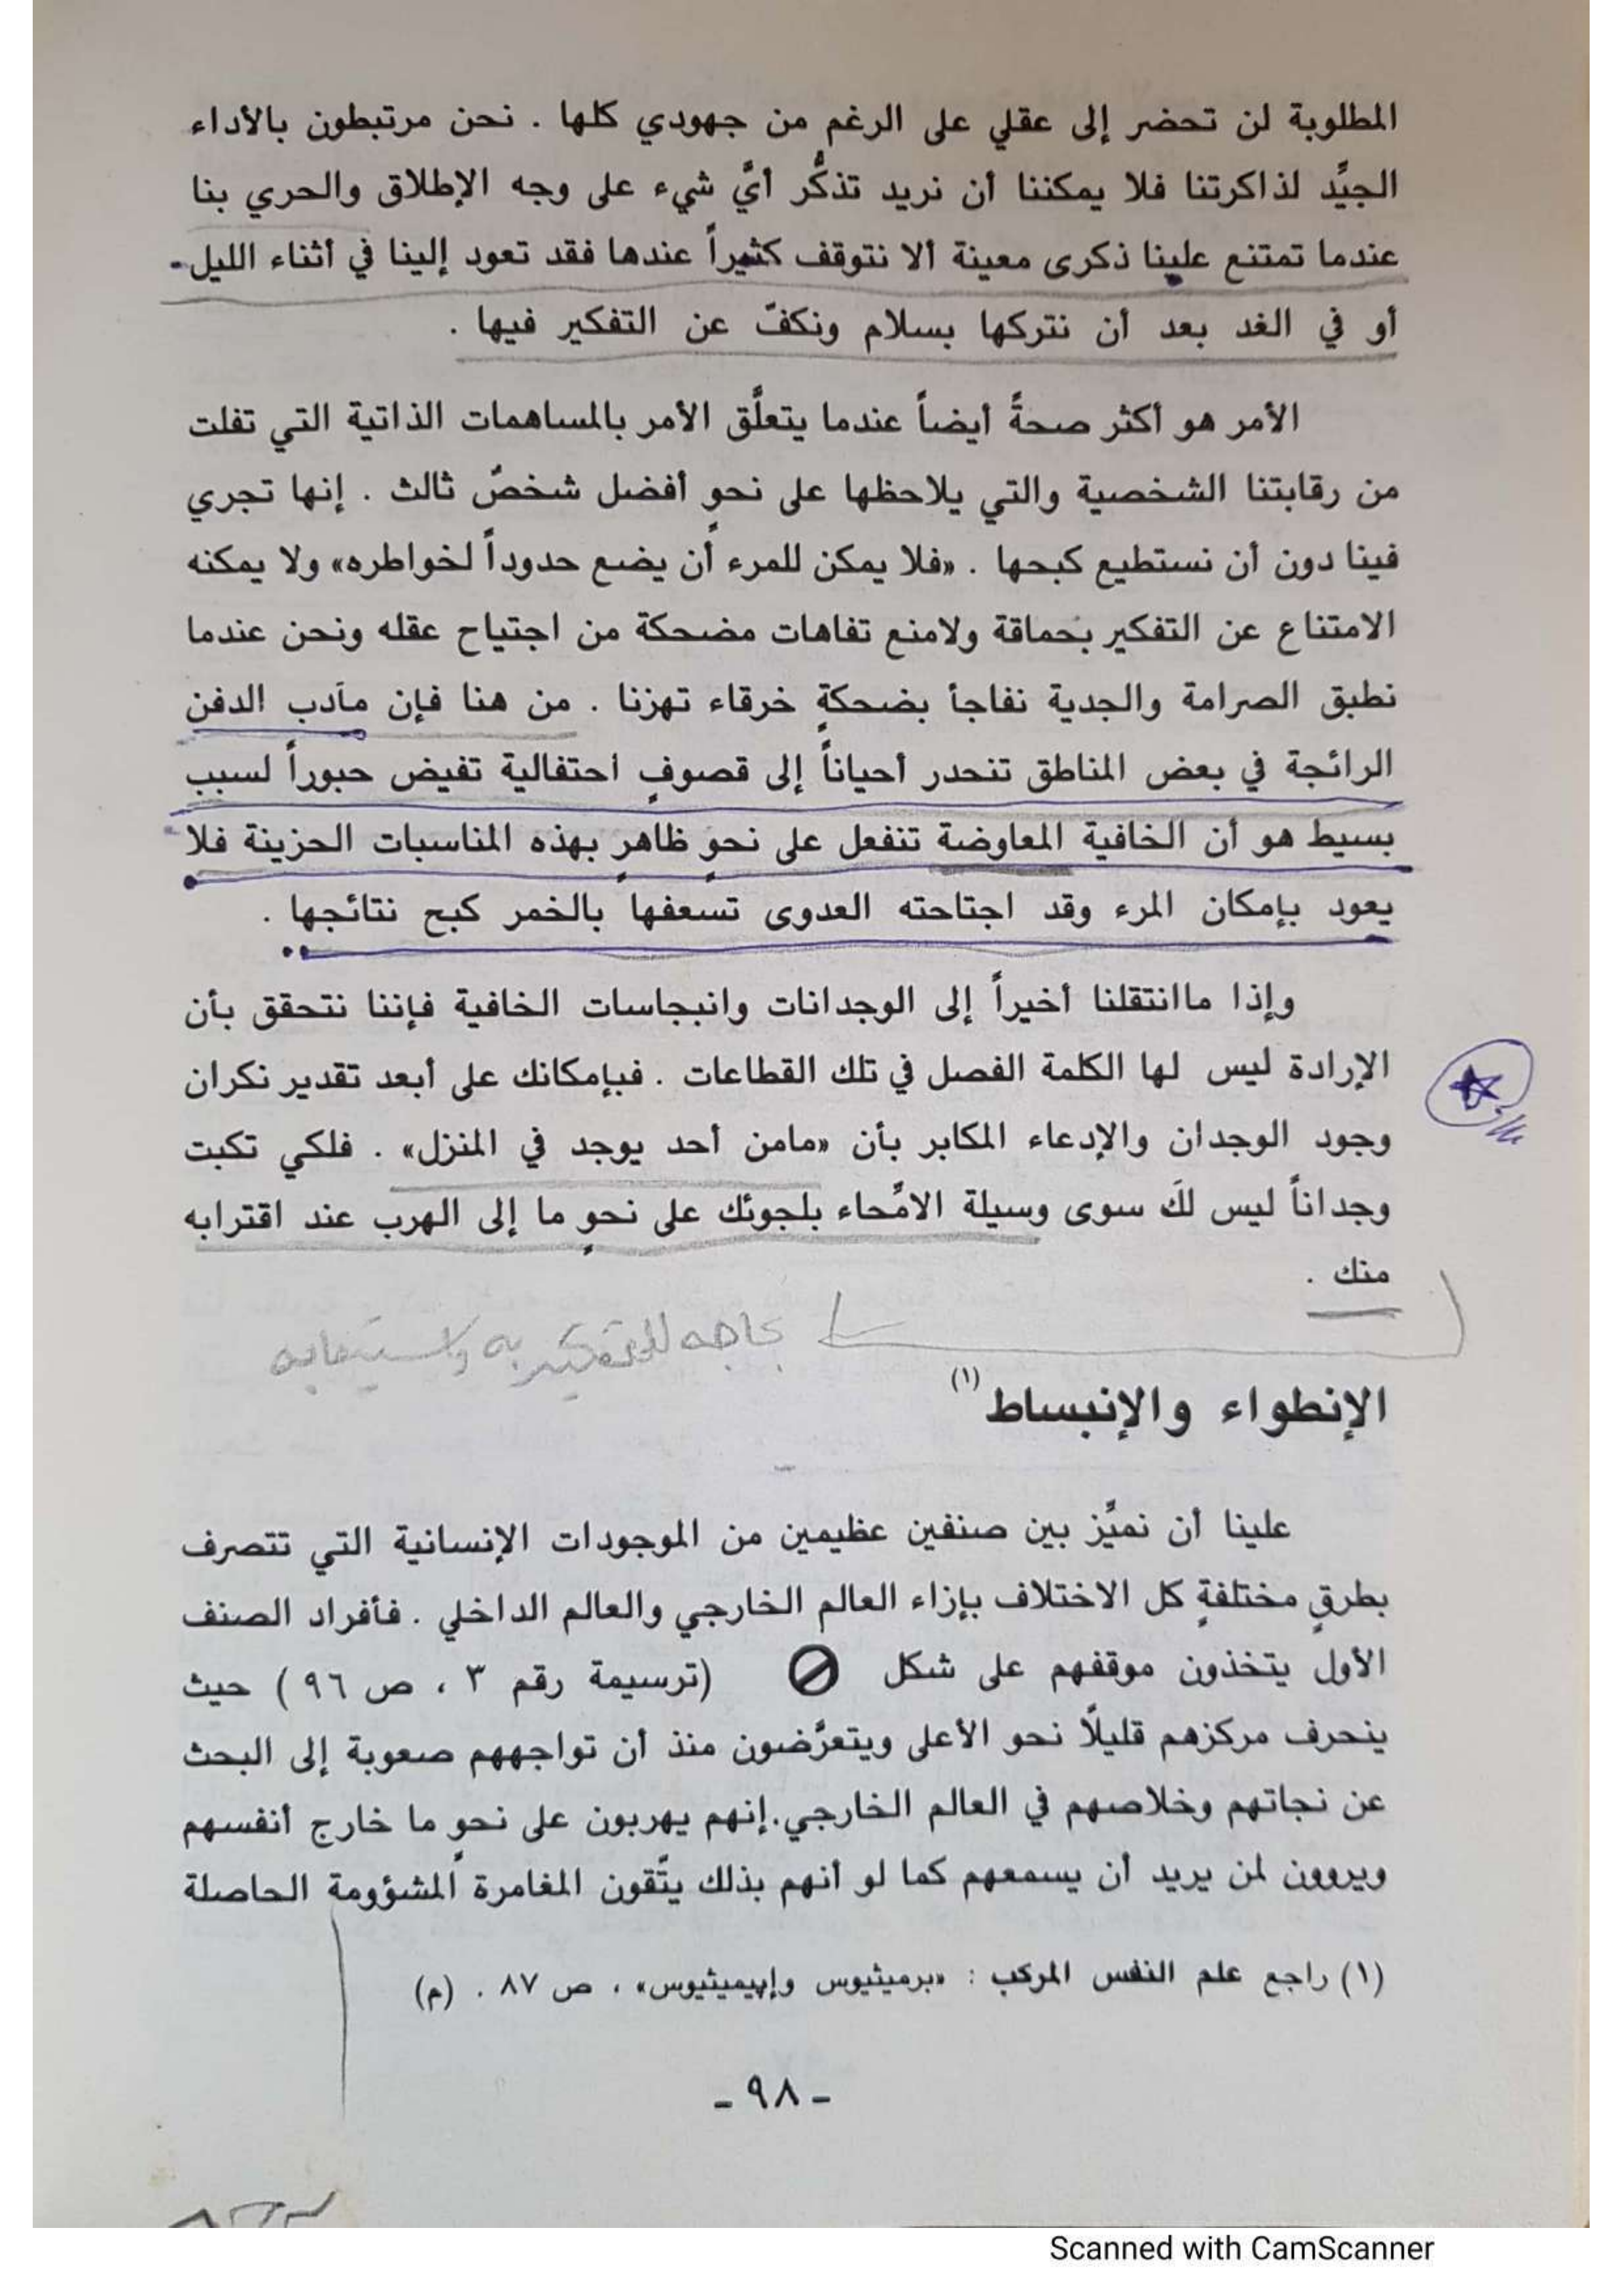 المطلوبة لن تحضر إلى عقلي على الرغم من جهودي كلها . نحن مرتبطون بالأداء
الجيِّد لذاكرتنا فلا يمكننا أن نريد تذكُّر أيَّ شيء على وجه الإطلاق والحري بنا
عندما تمتنع علينا ذكرى معينة ألا نتوقف كثيراً عندها فقد تعود إلينا في أثناء الليل
أو في الغد بعد أن نتركها بسلام ونكفّ عن التفكير فيها .
الأمر هو أكثر صحةً أيضاً عندما يتعلَّق الأمر بالمساهمات الذاتية التي تفلت
من رقابتنا الشخصية والتي يلاحظها على نحوٍ أفضل شخصٌ ثالث . إنها تجري
فينا دون أن نستطيع كبحها . «فلا يمكن للمرء أن يضع حدوداً لخواطره» ولا يمكنه
الامتناع عن التفكير بحماقة ولامنع تفاهات مضحكة من اجتياح عقله ونحن عندما
نطبق الصرامة والجدية نفاجأ بضحكةٍ خرقاء تهزنا . من هنا فإن مآدب الدفن
الرائجة في بعض المناطق تنحدر أحياناً إلى قصوفٍ احتفالية تفيض حبوراً لسبب
بسيط هو أن الخافية المعاوضة تنفعل على نحوٍ ظاهرٍ بهذه المناسبات الحزينة فلا
يعود بإمكان المرء وقد اجتاحته العدوى تسعفها بالخمر كبح نتائجها .
وإذا ماانتقلنا أخيراً إلى الوجدانات وانبجاسات الخافية فإننا نتحقق بأن
الإرادة ليس لها الكلمة الفصل في تلك القطاعات . فبإمكانك على أبعد تقدير نكران
وجود الوجدان والإدعاء المكابر بأن «مامن أحد يوجد في المنزل» . فلكي تكبت
وجداناً ليس لكَ سوى وسيلة الامِّحاء بلجوئك على نحوٍ ما إلى الهرب عند اقترابه
منك .
بحاجه للتفكير به واستيعابه
الإنطواء والإنبساط (١)
علينا أن نميِّز بين صنفين عظيمين من الموجودات الإنسانية التي تتصرف
بطرقٍ مختلفةٍ كل الاختلاف بإزاء العالم الخارجي والعالم الداخلي . فأفراد الصنف
الأول يتخذون موقفهم على شكل (ترسيمة رقم ٣ ، ص ٩٦ ) حيث
ينحرف مركزهم قليلًا نحو الأعلى ويتعرَّضون منذ أن تواجههم صعوبة إلى البحث
عن نجاتهم وخلاصهم في العالم الخارجي.إنهم يهربون على نحوٍ ما خارج أنفسهم
ويروون لمن يريد أن يسمعهم كما لو أنهم بذلك يتَّقون المغامرة المشؤومة الحاصلة
(١) راجع علم النفس المركب : «برميثيوس وإپيميثيوس» ، ص ٨٧ . (م)
- ٩٨ -
Scanned with CamScanner